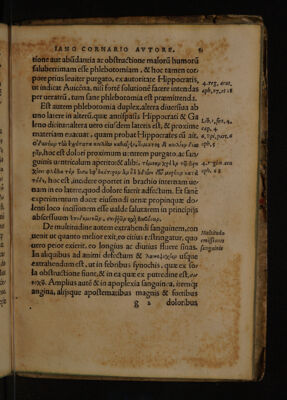 IANO CORNARIO AVTORE. 61
tione aut abūdantia ac obstructione malorū humorū
saluberrimam esse phlebotomiam, & hoc tamen cor-
pore prius leuiter purgato, ex autoritate Hippocratis,
ut indicat Auicēna, nisi forte solutionē facere intendas
per ueratrū, tum sane phlebotomia est præmittenda.
Est autem phlebotomia duplex, altera diuersiua ab
uno latere in alterū, quæ antispasis Hippocrati & Ga
leno dicitur: altera uero eiusdem lateris est, & proxime
materiam euacuat, quam probat Hippocrates cū ait,
hoc est dolori proximum uentrem purgato, ac san-
guinis uentriculum aperito: & alibi,
hoc est, incidere oportet in brachio internam ue-
nam in eo latere, quod dolore fuerit adfectum. Et sane
experimentum docet eiusmodi uenæ propinquæ do-
lenti loco incisionem esse ualde salutarem in principijs
abscessuum
De multitudine autem extrahendi sanguinem, con
uenit ut quanto melior exit, eo citius restringatur, quo
uero peior exierit, eo longius ac diutius fluere sinas.
In aliquibus ad animi defectum & usque
extrahendum est, ut in febribus synochis, quæ ex so-
la obstructione sunt, & in ea quæ ex putredine est,
Amplius autē & in apoplexia sanguinea, itemque
angina, alijsque apostematibus magnis & fortibus
g 2 doloribus
4. reg. acut.
aph. 27. et 28
Lib. 1. sec. 4.
cap. 4
6. epi. par. 6
aph. 5
Multitudo
emissionis
sanguinis